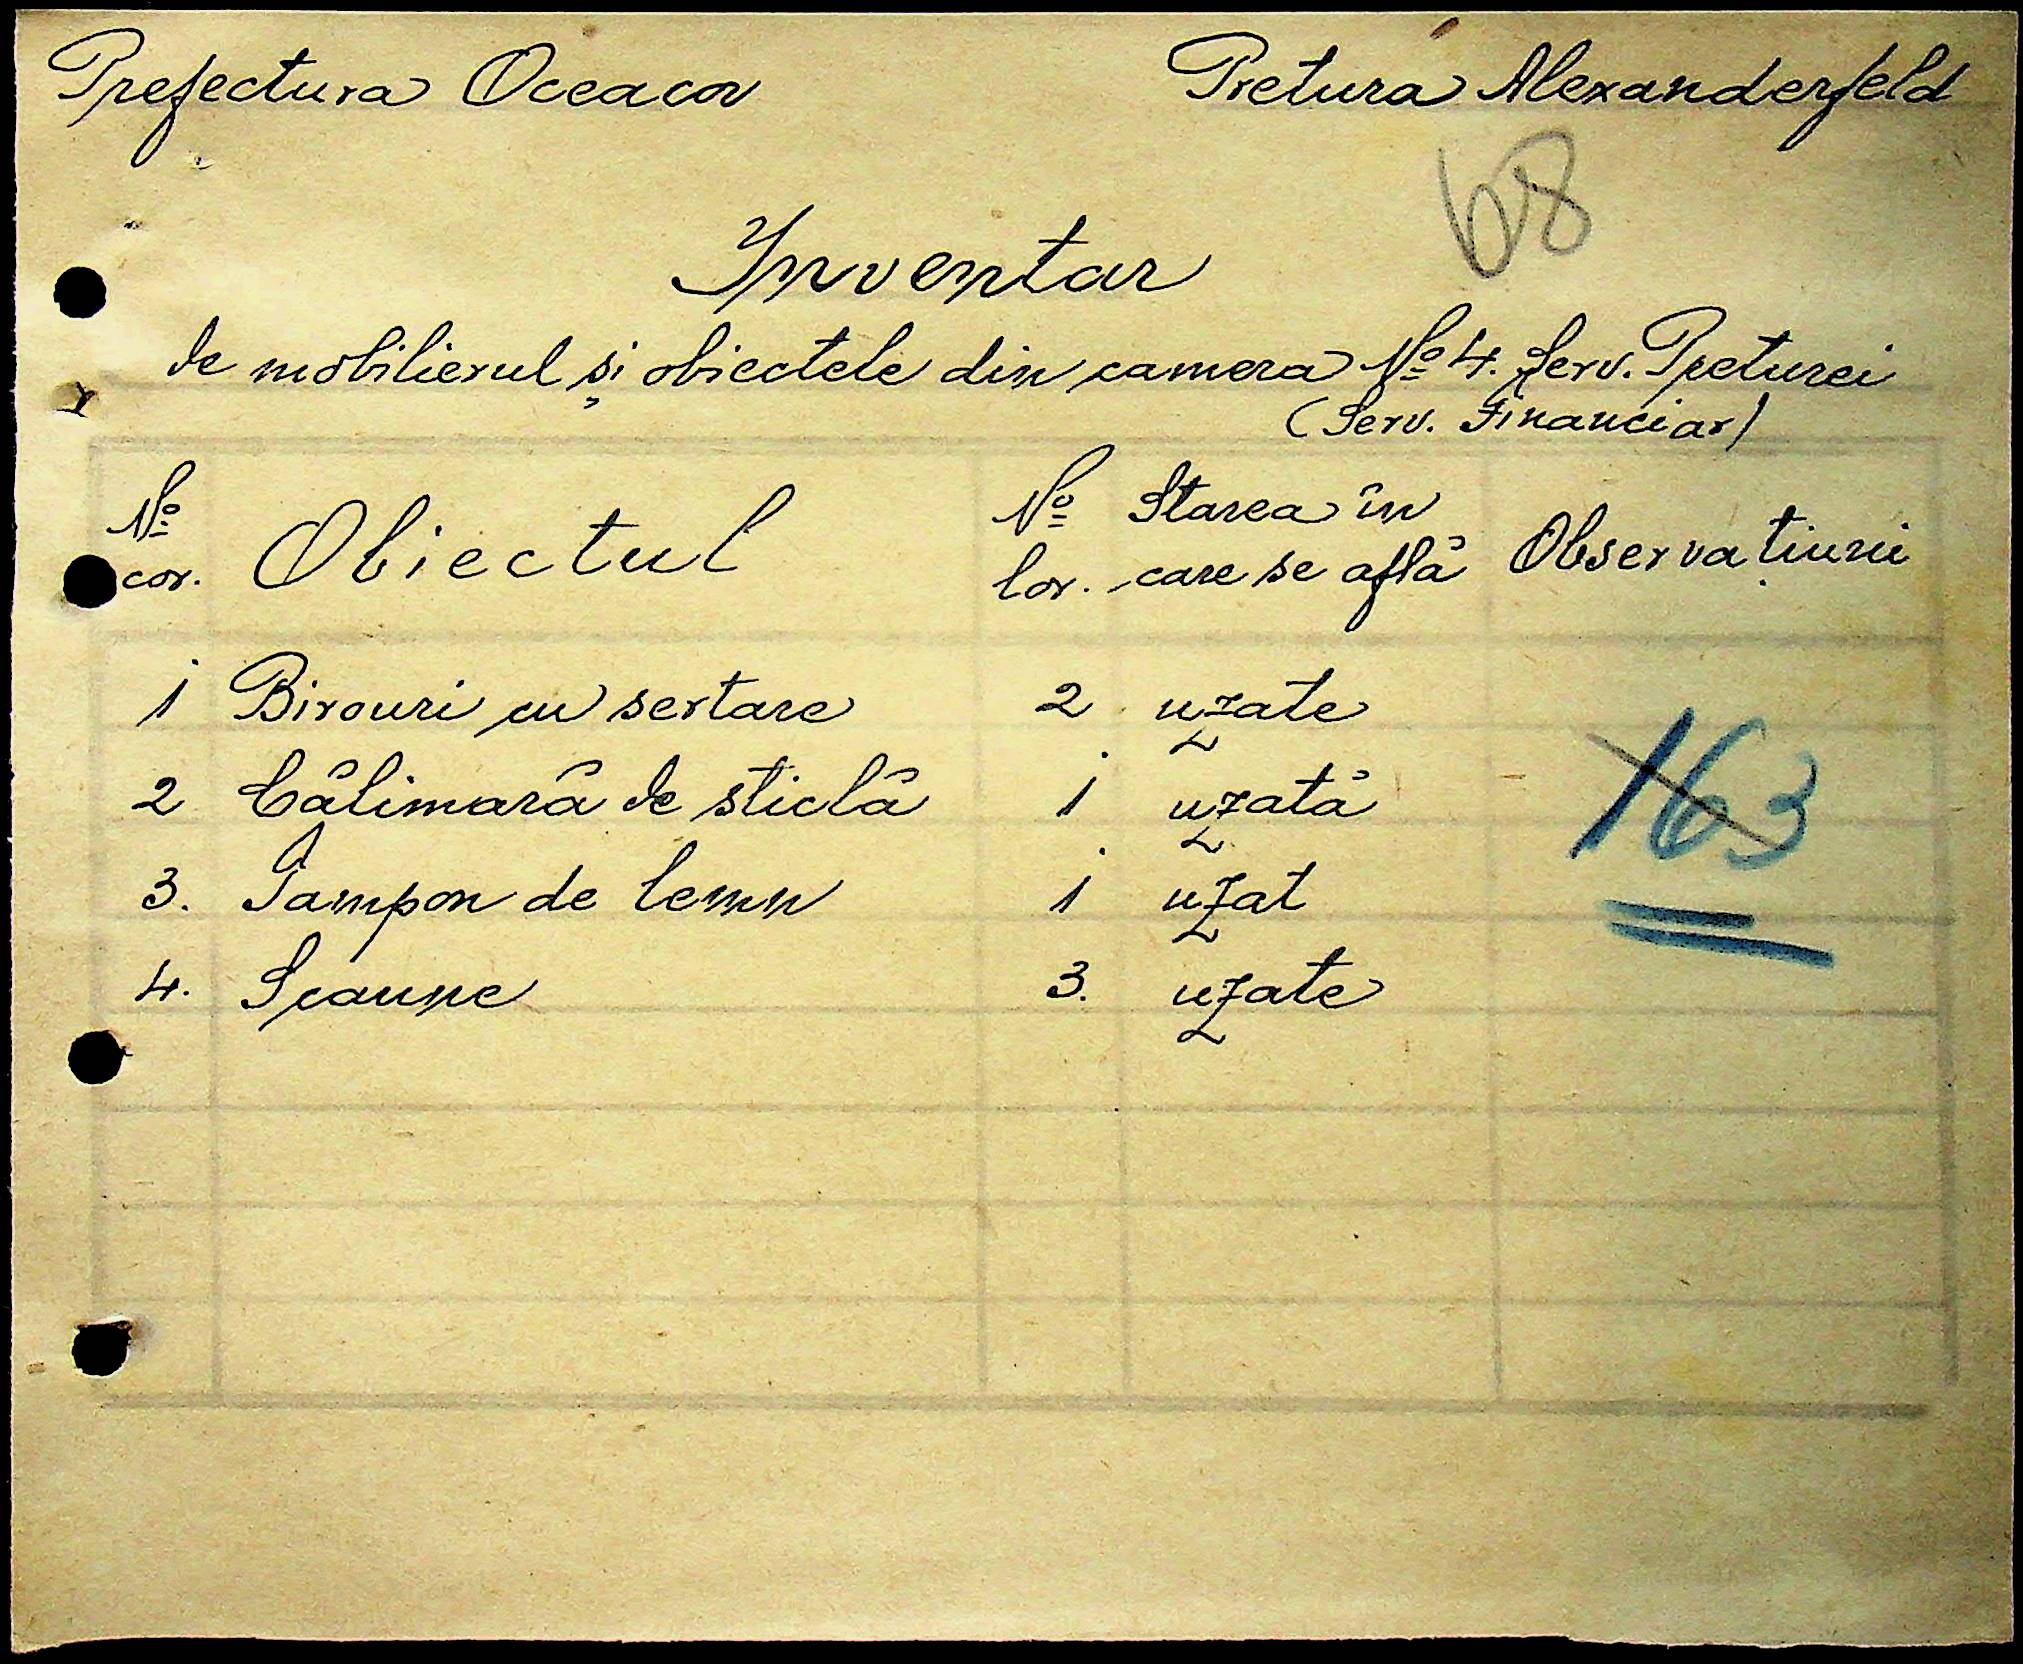 Prefectura Oceacov Pretura Alexanderfeld
68
Inventar
de mobilierul și obiectele din camera № 4. Serv. Preturei
(Serv. Financiar)
№ cor. Obiectul № lor. Starea în care se află Observațiuni
1 Birouri cu sertare 2 uzate
2 Călimară de sticlă 1 uzată
3. Tampon de lemn 1 uzat
4. Scaune 3. uzate
163